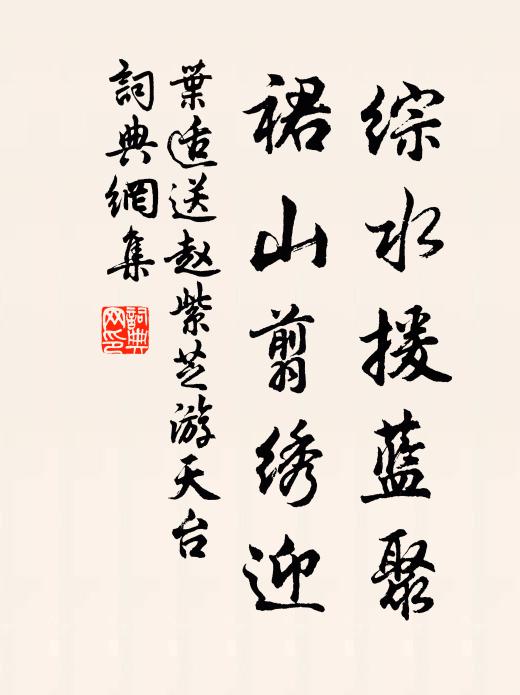 综水援蓝聚
裙山翦绣迎
葉适送赵紫芝游天台
詞典網集
詞典網印